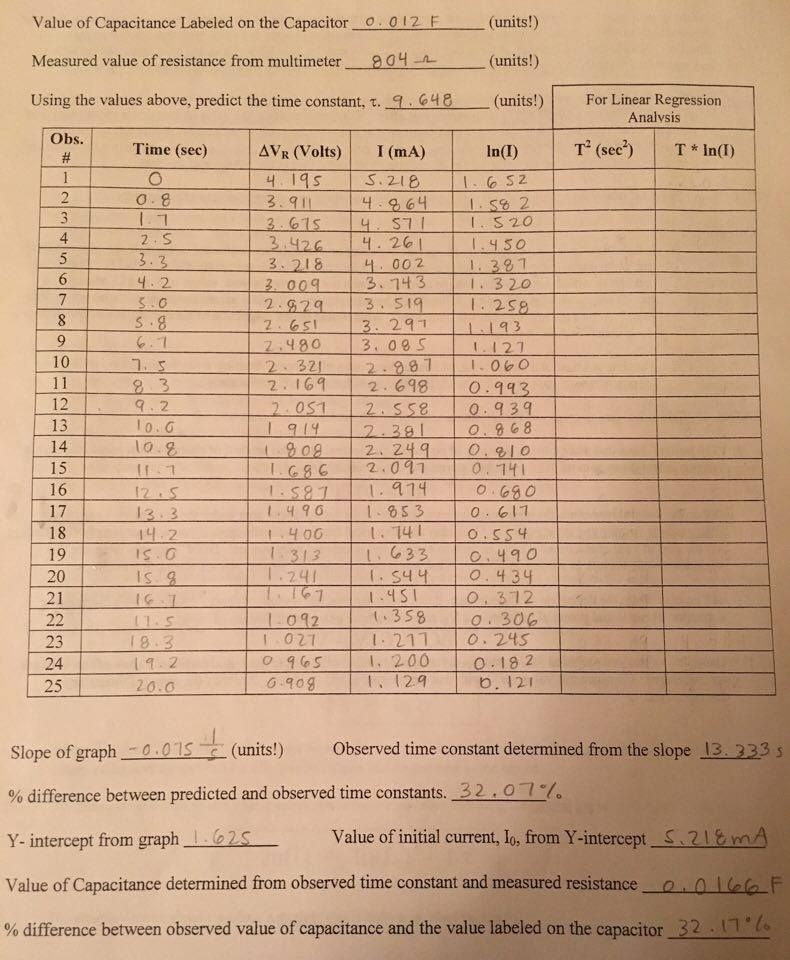 Value of Capacitance Labeled on the Capacitor 0.012 F (units!)
Measured value of resistance from multimeter 804 Ω (units!)
Using the values above, predict the time constant, τ. 9.648 (units!)
For Linear Regression Analysis
Obs. # Time (sec) ΔV_R (Volts) I (mA) ln(I) T² (sec²) T * ln(I)
1 0 4.195 5.218 1.652
2 0.8 3.911 4.864 1.582
3 1.7 3.675 4.571 1.520
4 2.5 3.426 4.261 1.450
5 3.3 3.218 4.002 1.387
6 4.2 3.009 3.743 1.320
7 5.0 2.829 3.519 1.258
8 5.8 2.651 3.297 1.193
9 6.7 2.480 3.085 1.127
10 7.5 2.321 2.887 1.060
11 8.3 2.169 2.698 0.993
12 9.2 2.057 2.558 0.939
13 10.0 1.914 2.381 0.868
14 10.8 1.808 2.249 0.810
15 11.7 1.686 2.097 0.741
16 12.5 1.587 1.974 0.680
17 13.3 1.490 1.853 0.617
18 14.2 1.400 1.741 0.554
19 15.0 1.313 1.633 0.490
20 15.8 1.241 1.544 0.434
21 16.7 1.167 1.451 0.372
22 17.5 1.092 1.358 0.306
23 18.3 1.027 1.277 0.245
24 19.2 0.965 1.200 0.182
25 20.0 0.908 1.129 0.121
Slope of graph -0.075 1/s (units!) Observed time constant determined from the slope 13.333 s
% difference between predicted and observed time constants. 32.07%
Y- intercept from graph 1.625 Value of initial current, I₀, from Y-intercept 5.218 mA
Value of Capacitance determined from observed time constant and measured resistance 0.0166 F
% difference between observed value of capacitance and the value labeled on the capacitor 32.17%